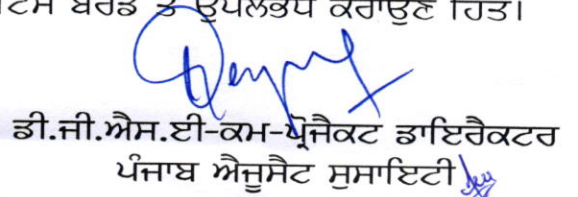 ਬੋਰਡ ਤੇ ਉਪਲਭਧ ਕਰਾਉਣ ਹਿਤ।
ਡੀ.ਜੀ.ਐਸ.ਈ-ਕਮ-ਪ੍ਰੋਜੈਕਟ ਡਾਇਰੈਕਟਰ
ਪੰਜਾਬ ਐਜੂਸੈਟ ਸੁਸਾਇਟੀ